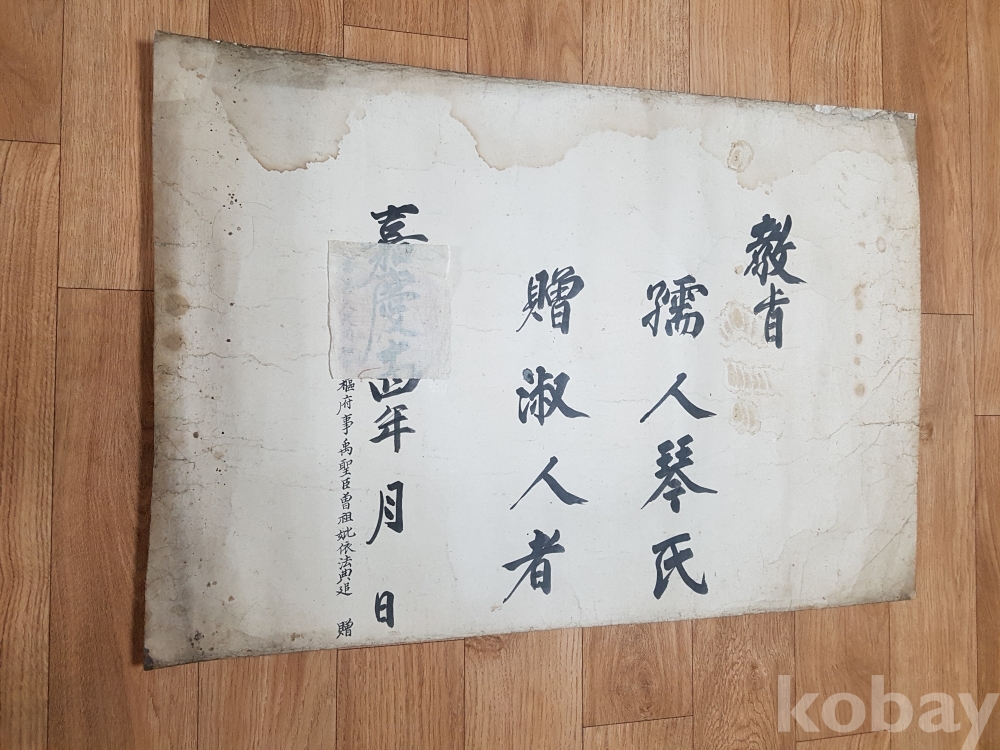 敎旨
孺人琴氏
贈淑人者
嘉慶 四年 月 日
樞府事禹聖臣曽祖妣依法典追 贈
kobay